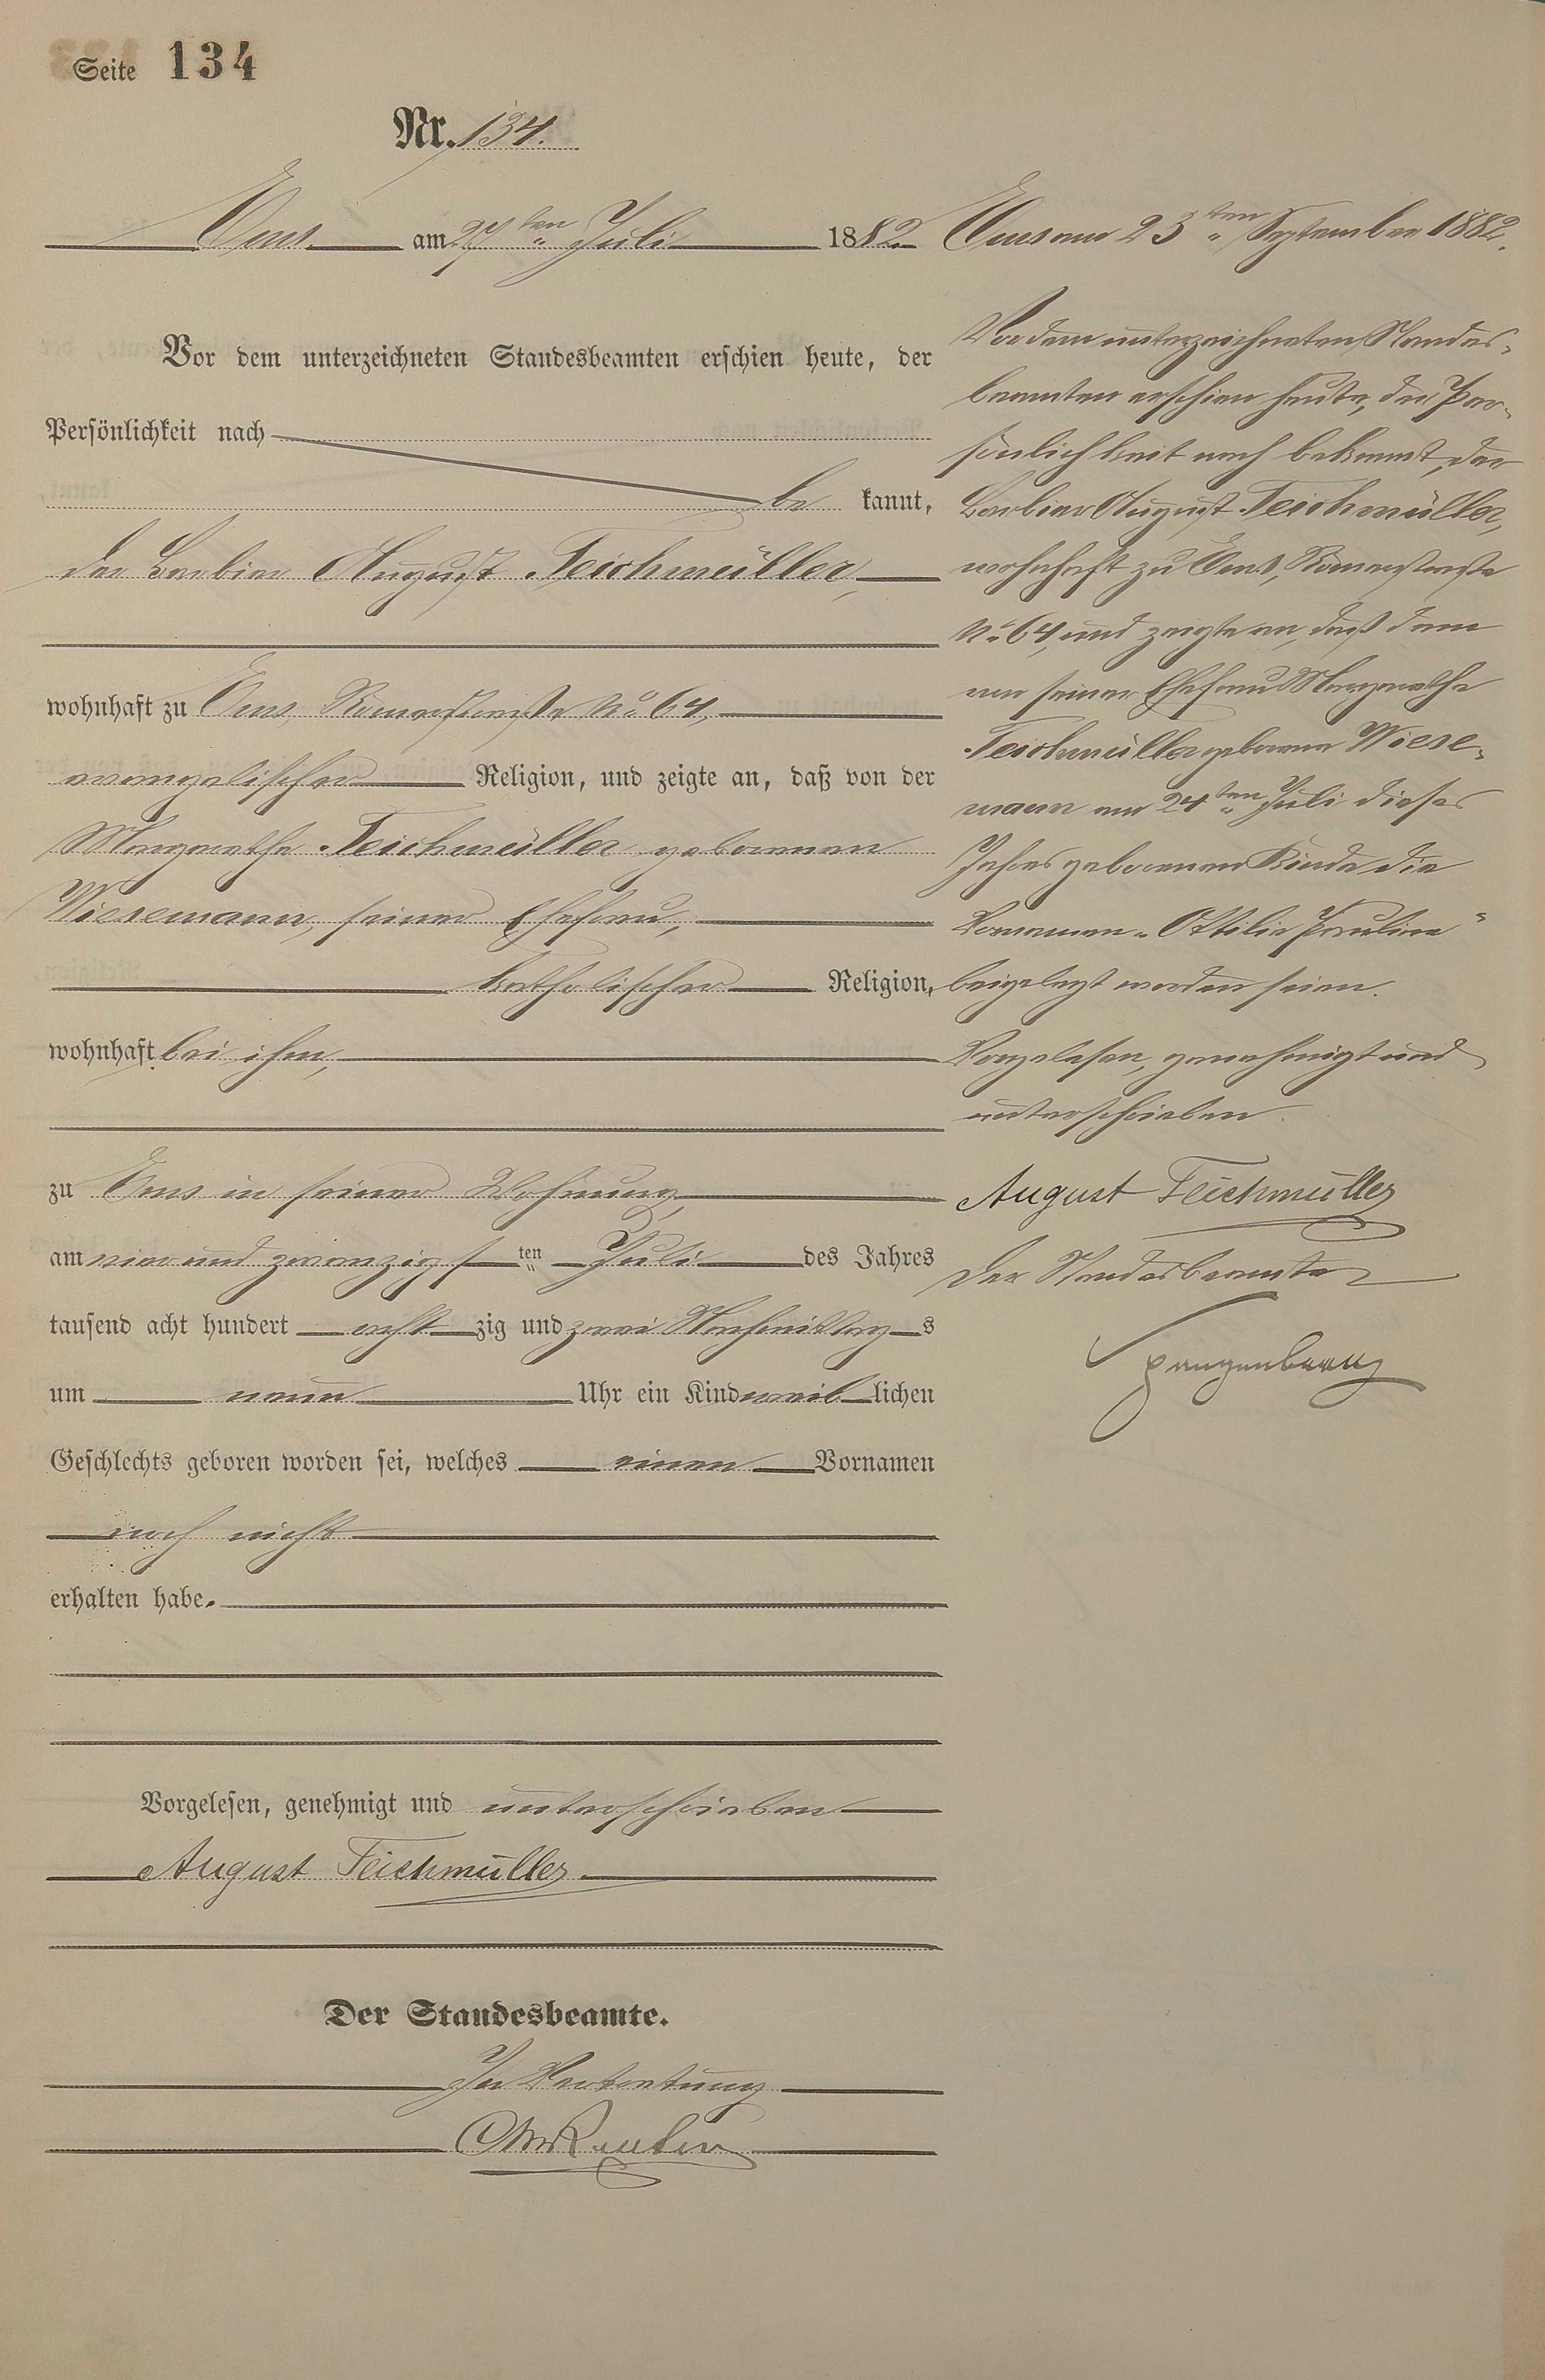 Seite 134
Nr. 134.
Ems am 27ten Juli 1882.
Vor dem unterzeichneten Standesbeamten erschien heute, der
Persönlichkeit nach
be kannt,
der Barbier August Teichmüller,
wohnhaft zu Ems, Römerstraße No 64,
evangelischer Religion, und zeigte an, daß von der
Margarethe Teichmüller geborenen
Wiesemann, seiner Ehefrau,
katholischer Religion,
wohnhaft bei ihm,
zu Ems in seiner Wohnung,
am vier und zwanzigsten Juli des Jahres
tausend acht hundert acht zig und zwei Nachmittags
um neun Uhr ein Kind weiblichen
Geschlechts geboren worden sei, welches einen Vornamen
noch nicht
erhalten habe.
Vorgelesen, genehmigt und unterschrieben
August Teichmüller
Der Standesbeamte.
In Vertretung
Ems am 23ten September 1882.
Vor dem unterzeichneten Standes-
beamten erschien heute, der Per-
sönlichkeit nach bekannt, der
Barbier August Teichmüller,
wohnhaft zu Ems, Römerstraße
No 64, und zeigte an, daß dem
von seiner Ehefrau Margarethe
Teichmüller geborene Wiese-
mann am 24ten Juli dieses
Jahres geborenen Kinde die
Vornamen „Ottilie Pauline"
beigelegt worden seien.
Vorgelesen, genehmigt und
unterschrieben
August Teichmüller
Der Standesbeamte
Spangenberg